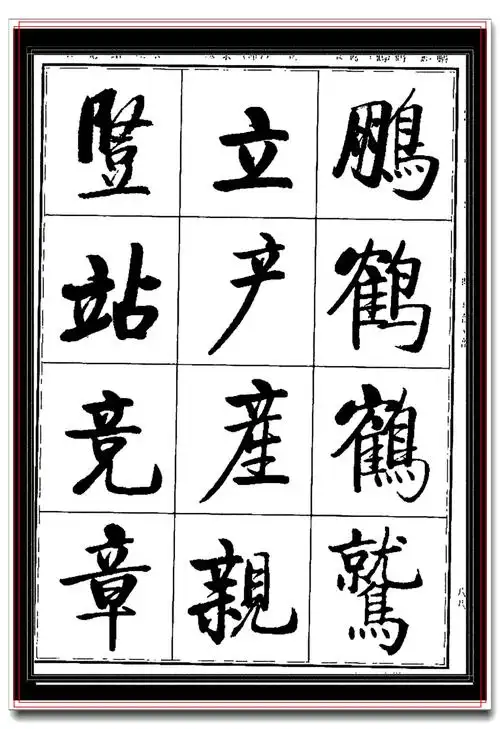 鵬鹤鶴鷲
立产產親
豎站竟章